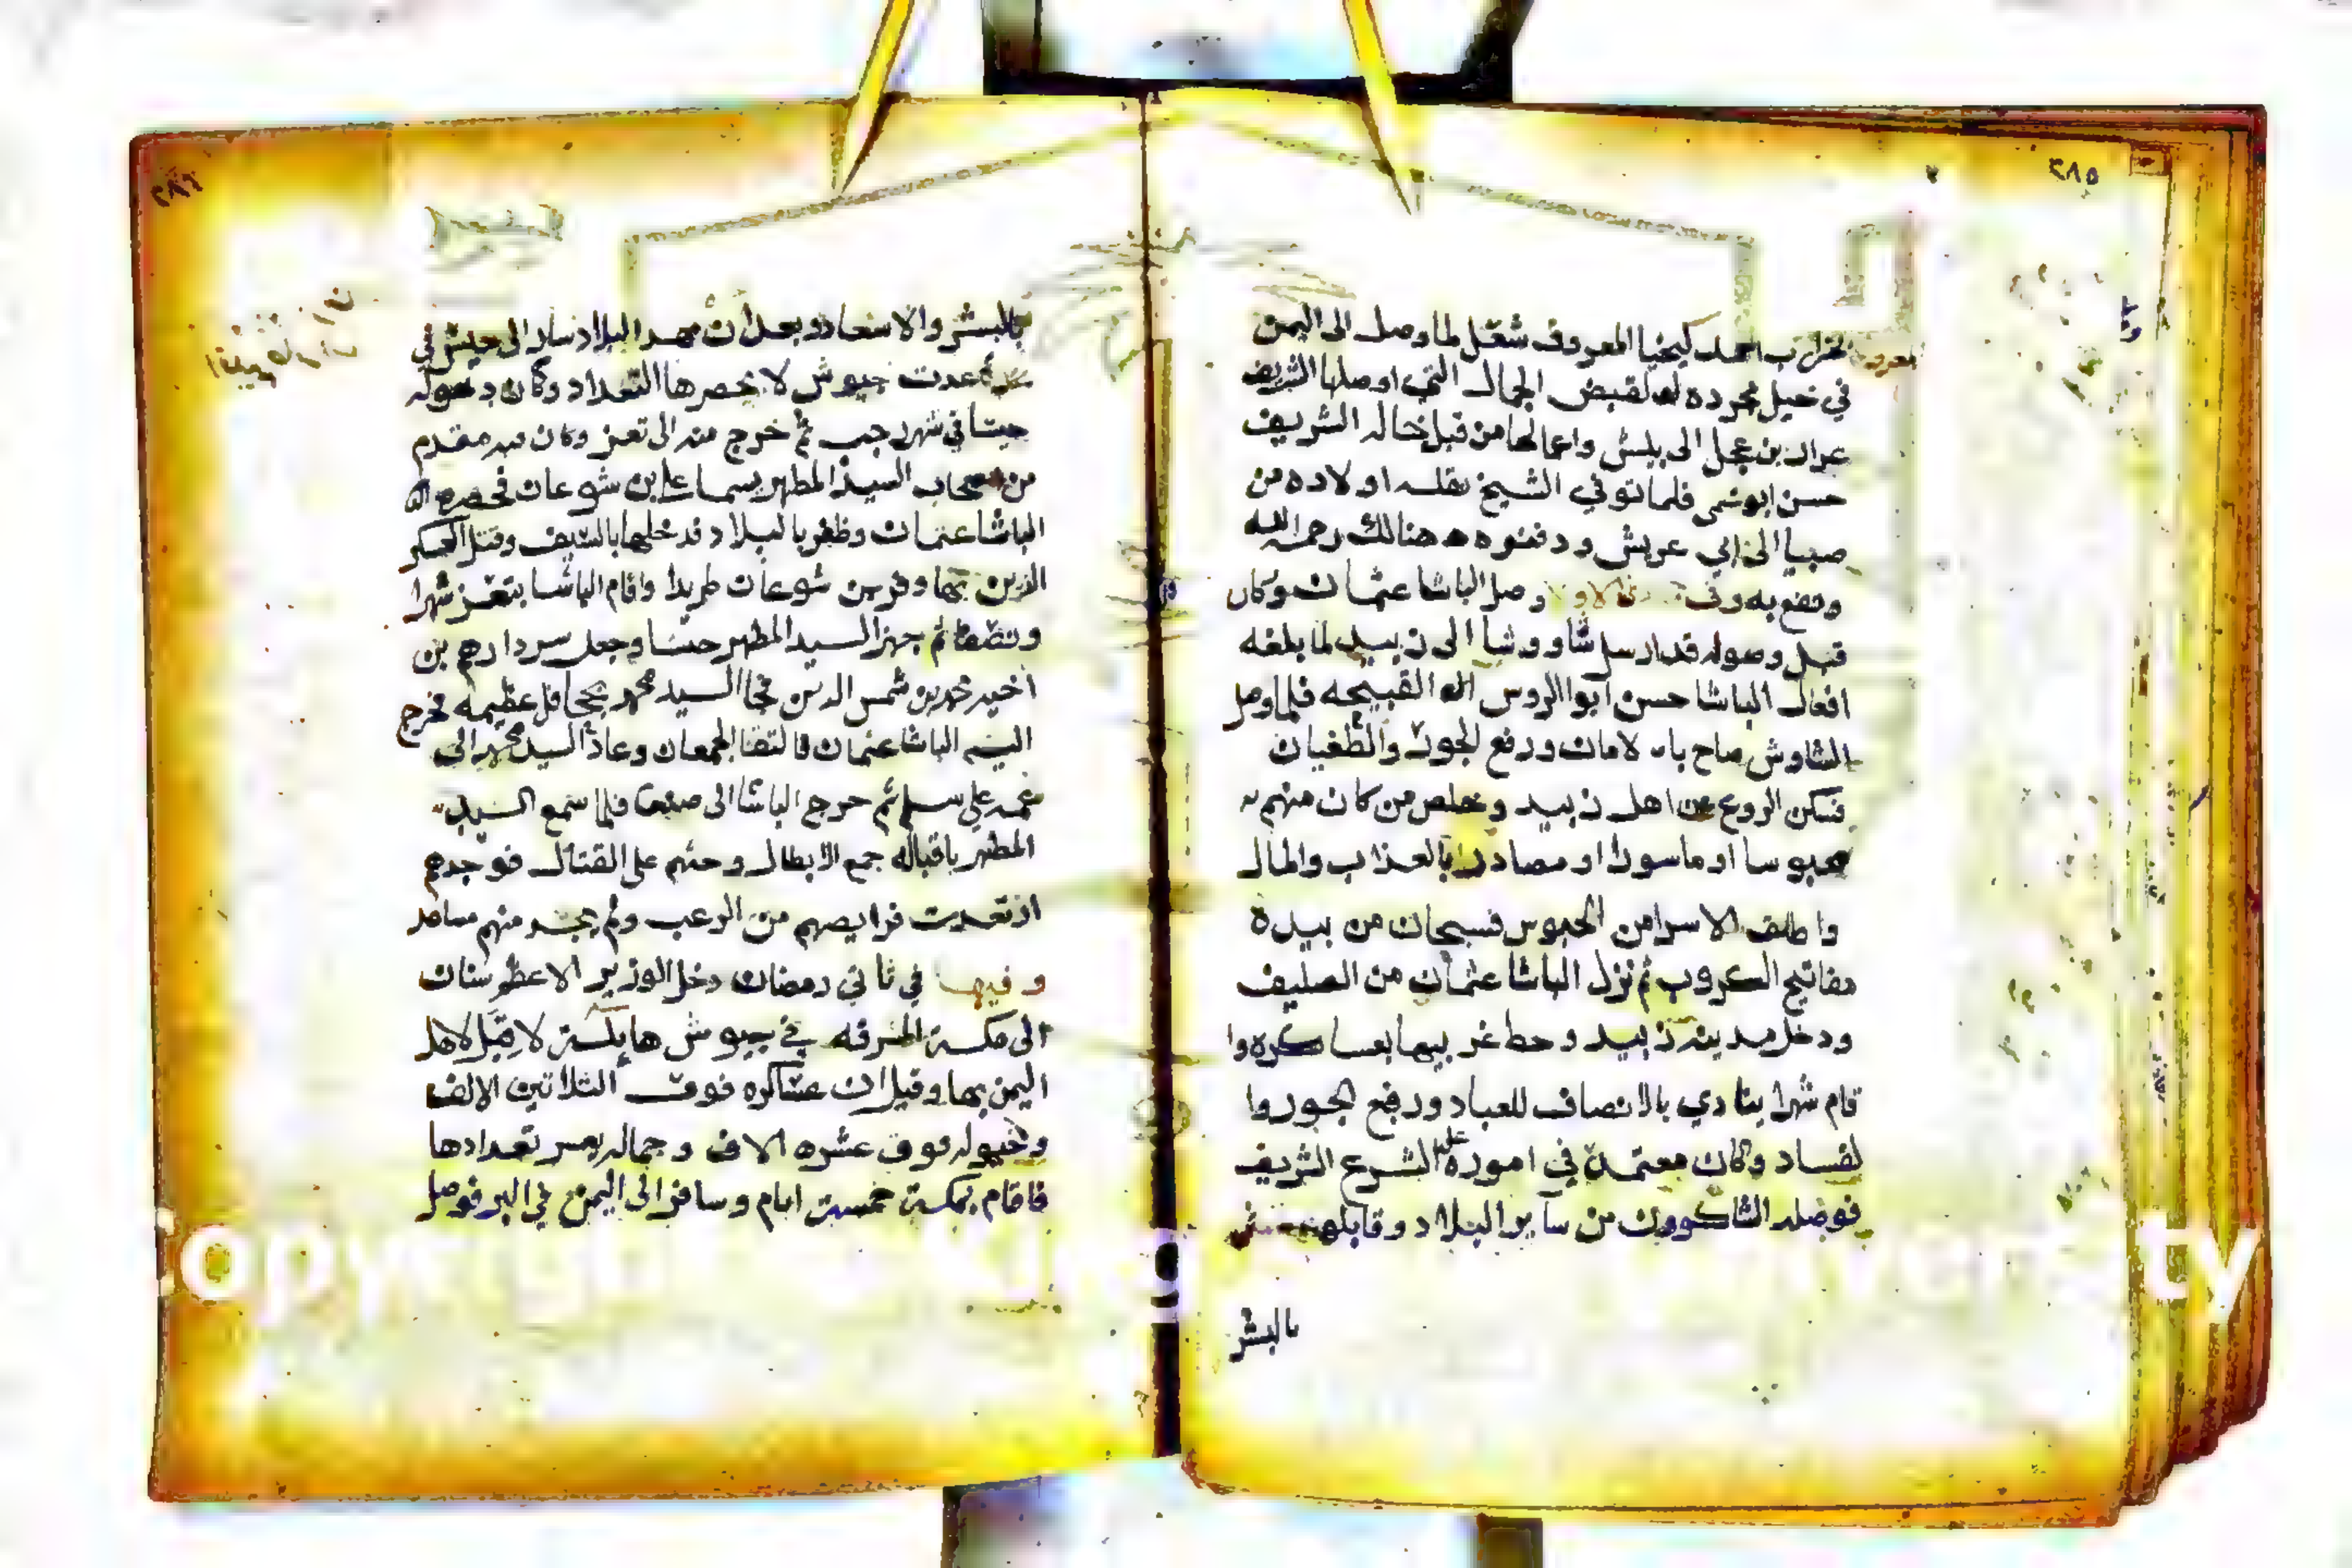 ٢٨٥
احمد كيخيا المعروف شغل لما وصل الى اليمن
في خيل مجرده له لقبض الجمال التي اوصلها الشريف
عرار بن عجل الى بيش واعمالها من قبل خاله الشريف
حسن ابو نمى فلما توفي الشيخ نقله اولاده من
صبيا الى ابي عريش ودفنوه هنالك رحمه الله
ونفع به وفي وصل الباشا عثمان وكان
قبل وصوله قد ارسل شاووشا الى زبيد لما بلغه
افعال الباشا حسن ابوا الروس القبيحه فلما وصل
الشاوش صاح بالامان ورفع الجور والطغيان
فسكن الروع عن اهل زبيد وخلص من كان منهم
محبوسا او ماسورا او مصادرا بالعذاب والمال
واطلق الاسرا من الحبوس فسبحان من بيده
مفاتيح الكروب ثم نزل الباشا عثمان من الصليف
ودخل مدينة زبيد وحط غربيها بعساكره وا
قام شهرا ينادي بالانصاف للعباد ورفع الجور وا
لفساد وكان معتمده في اموره على الشرع الشريف
فوصله الشاكوون من ساير البلاد وقابلهم
بالبشر
٢٨٦
بالبشر والاسعاد وبعد ان مهد البلاد سار الى حيش في
عدت جيوش لا يحصرها التعداد وكان دخوله
حيسا في شهر رجب ثم خرج منه الى تعز وكان فيه مقدم
من اصحاب السيد المطهر يسما علي بن شوعان فحصره
الباشا عثمان وظفر بالبلاد فدخلها بالسيف وقتل العسكر
الذين بها وفر بن شوعان طريدا واقام الباشا بتعز شهرا
ونصفا ثم جهز السيد المطهر جيشا وجعل سردارهم بن
اخيه محمد بن شمس الدين فجا السيد محمد بجحافل عظيمه فخرج
اليه الباشا عثمان فالتقا الجمعان وعاد السيد محمد الى
عمه على سلم ثم خرج الباشا الى صنعا فلما سمع السيد
المطهر باقباله جمع الابطال وحثهم على القتال فوجدهم
ارتعدت فرايصهم من الرعب ولم يجد منهم مساعد
وفيها في ثاني رمضان دخل الوزير الاعظم سنان
الى مكة المشرفه في جيوش هايلة لا قبل لاهل
اليمن بها وقيل ان عساكره فوق الثلاثين الالف
وخيوله فوق عشره الاف وجماله يعسر تعدادها
فاقام بمكة خمسة ايام وسافر الى اليمن في البر فوصل